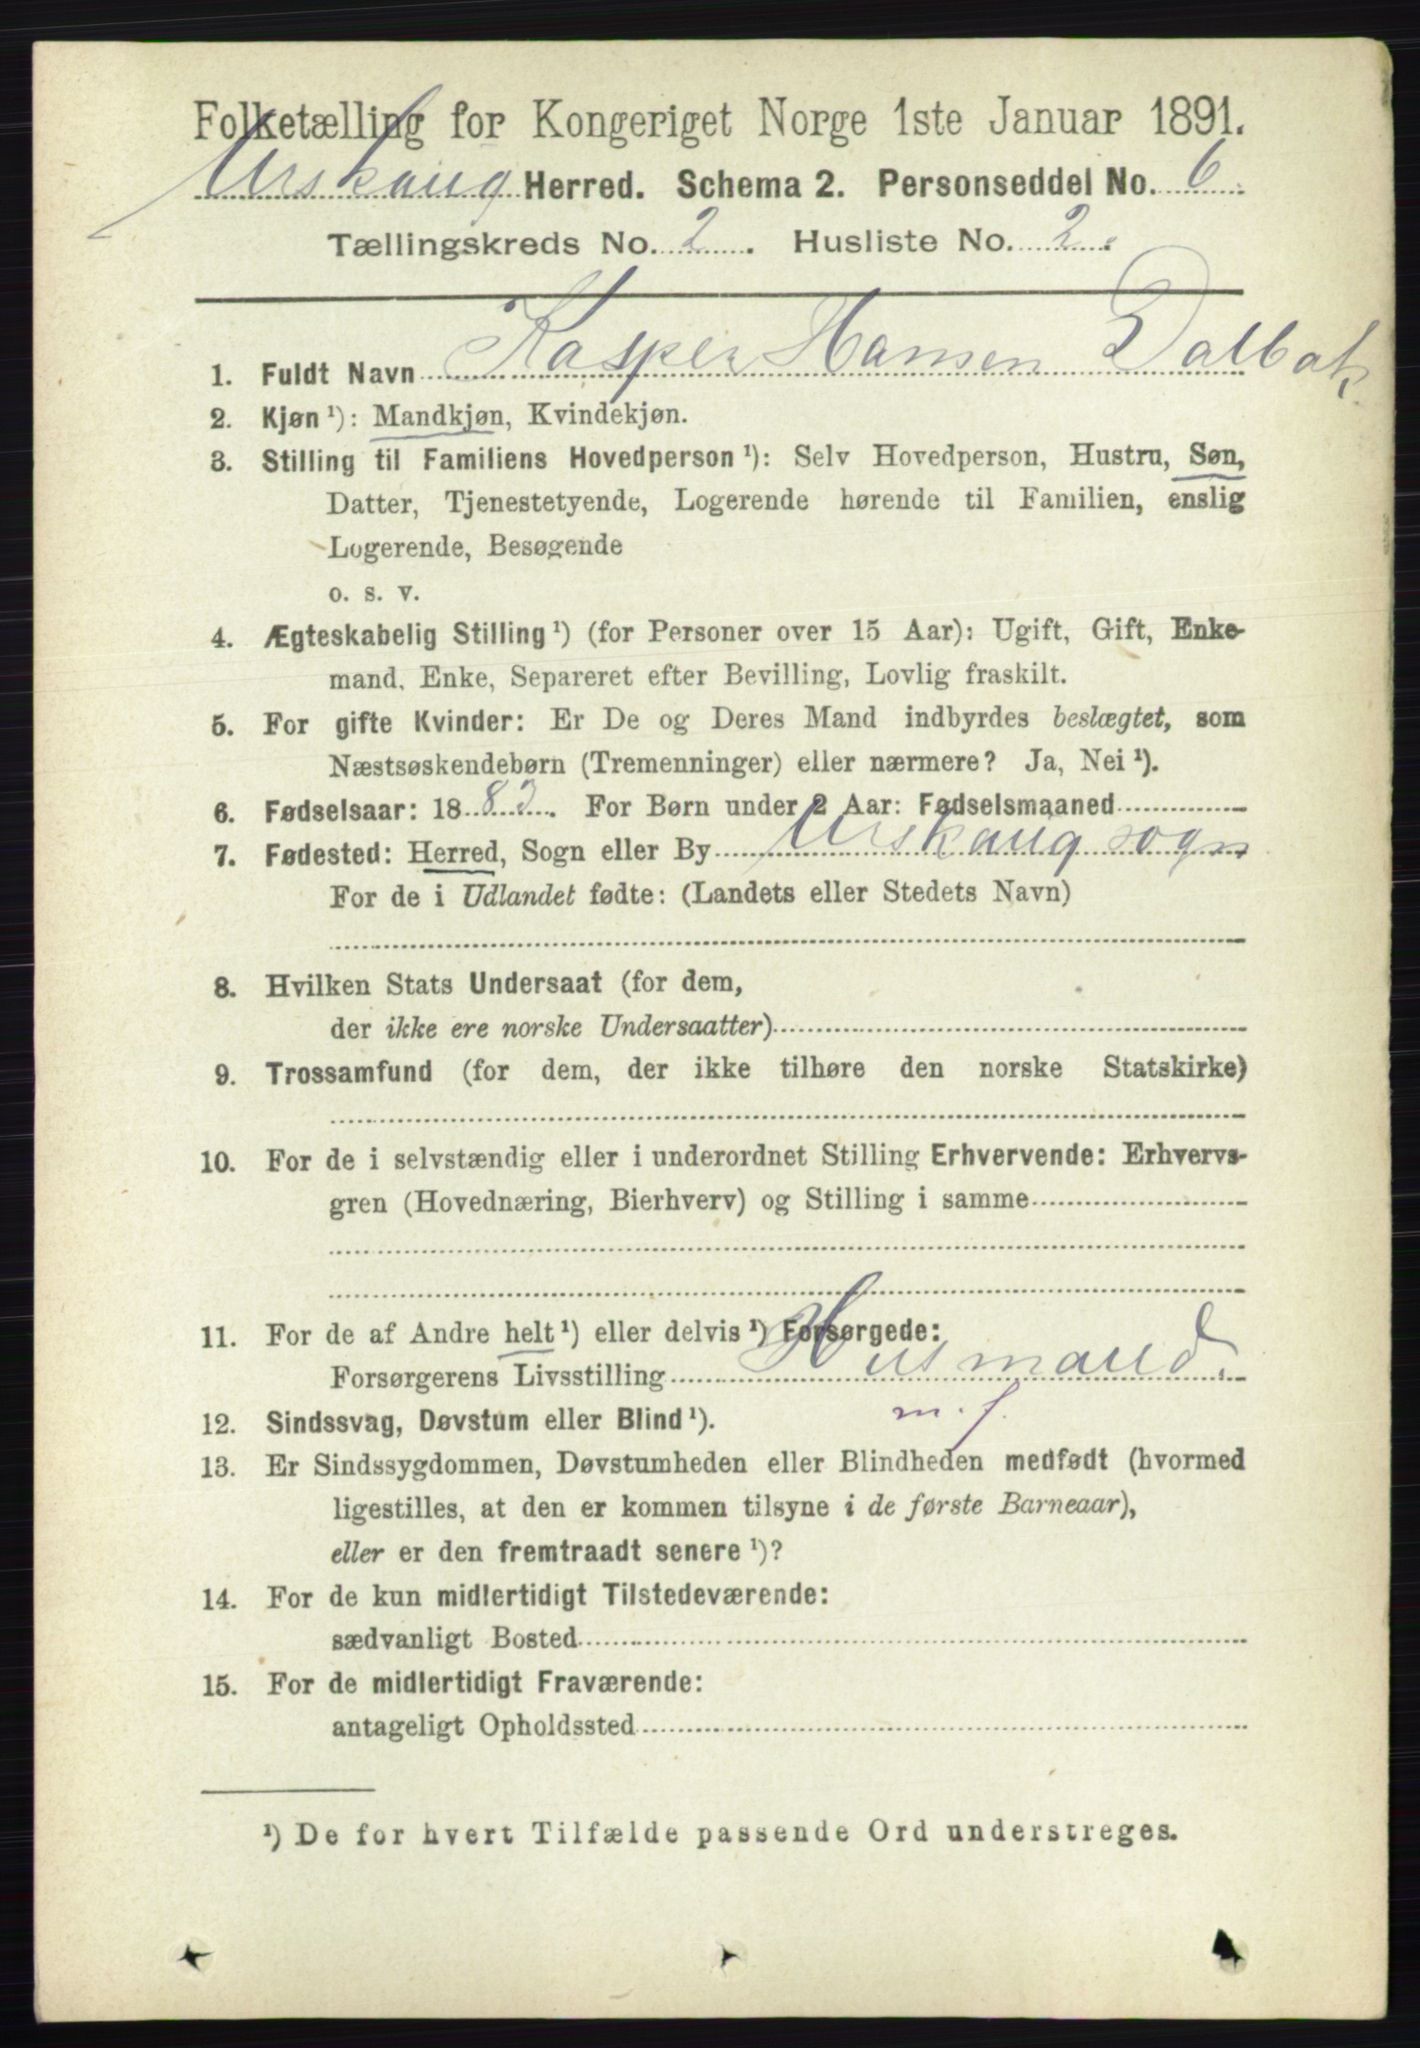 Folketælling for Kongeriget Norge 1ste Januar 1891.
Urskaug Herred. Schema 2. Personseddel No. 6.
Tællingskreds No. 2. Husliste No. 2.
1. Fuldt Navn Kasper Hansen Dalbak.
2. Kjøn ¹): Mandkjøn, Kvindekjøn.
3. Stilling til Familiens Hovedperson ¹): Selv Hovedperson, Hustru, Søn,
Datter, Tjenestetyende, Logerende hørende til Familien, enslig
Logerende, Besøgende
o. s. v.
4. Ægteskabelig Stilling ¹) (for Personer over 15 Aar): Ugift, Gift, Enke-
mand, Enke, Separeret efter Bevilling, Lovlig fraskilt.
5. For gifte Kvinder: Er De og Deres Mand indbyrdes beslægtet, som
Næstsøskendebørn (Tremenninger) eller nærmere? Ja, Nei ¹).
6. Fødselsaar: 1883. For Børn under 2 Aar: Fødselsmaaned
7. Fødested: Herred, Sogn eller By Urskaug sogn
For de i Udlandet fødte: (Landets eller Stedets Navn)
8. Hvilken Stats Undersaat (for dem,
der ikke ere norske Undersaatter)
9. Trossamfund (for dem, der ikke tilhøre den norske Statskirke)
10. For de i selvstændig eller i underordnet Stilling Erhvervende: Erhvervs-
gren (Hovednæring, Bierhverv) og Stilling i samme
11. For de af Andre helt ¹) eller delvis ¹) Forsørgede:
Forsørgerens Livsstilling Husmand.
m. f.
12. Sindssvag, Døvstum eller Blind ¹).
13. Er Sindssygdommen, Døvstumheden eller Blindheden medfødt (hvormed
ligestilles, at den er kommen tilsyne i de første Barneaar),
eller er den fremtraadt senere ¹)?
14. For de kun midlertidigt Tilstedeværende:
sædvanligt Bosted
15. For de midlertidigt Fraværende:
antageligt Opholdssted
¹) De for hvert Tilfælde passende Ord understreges.